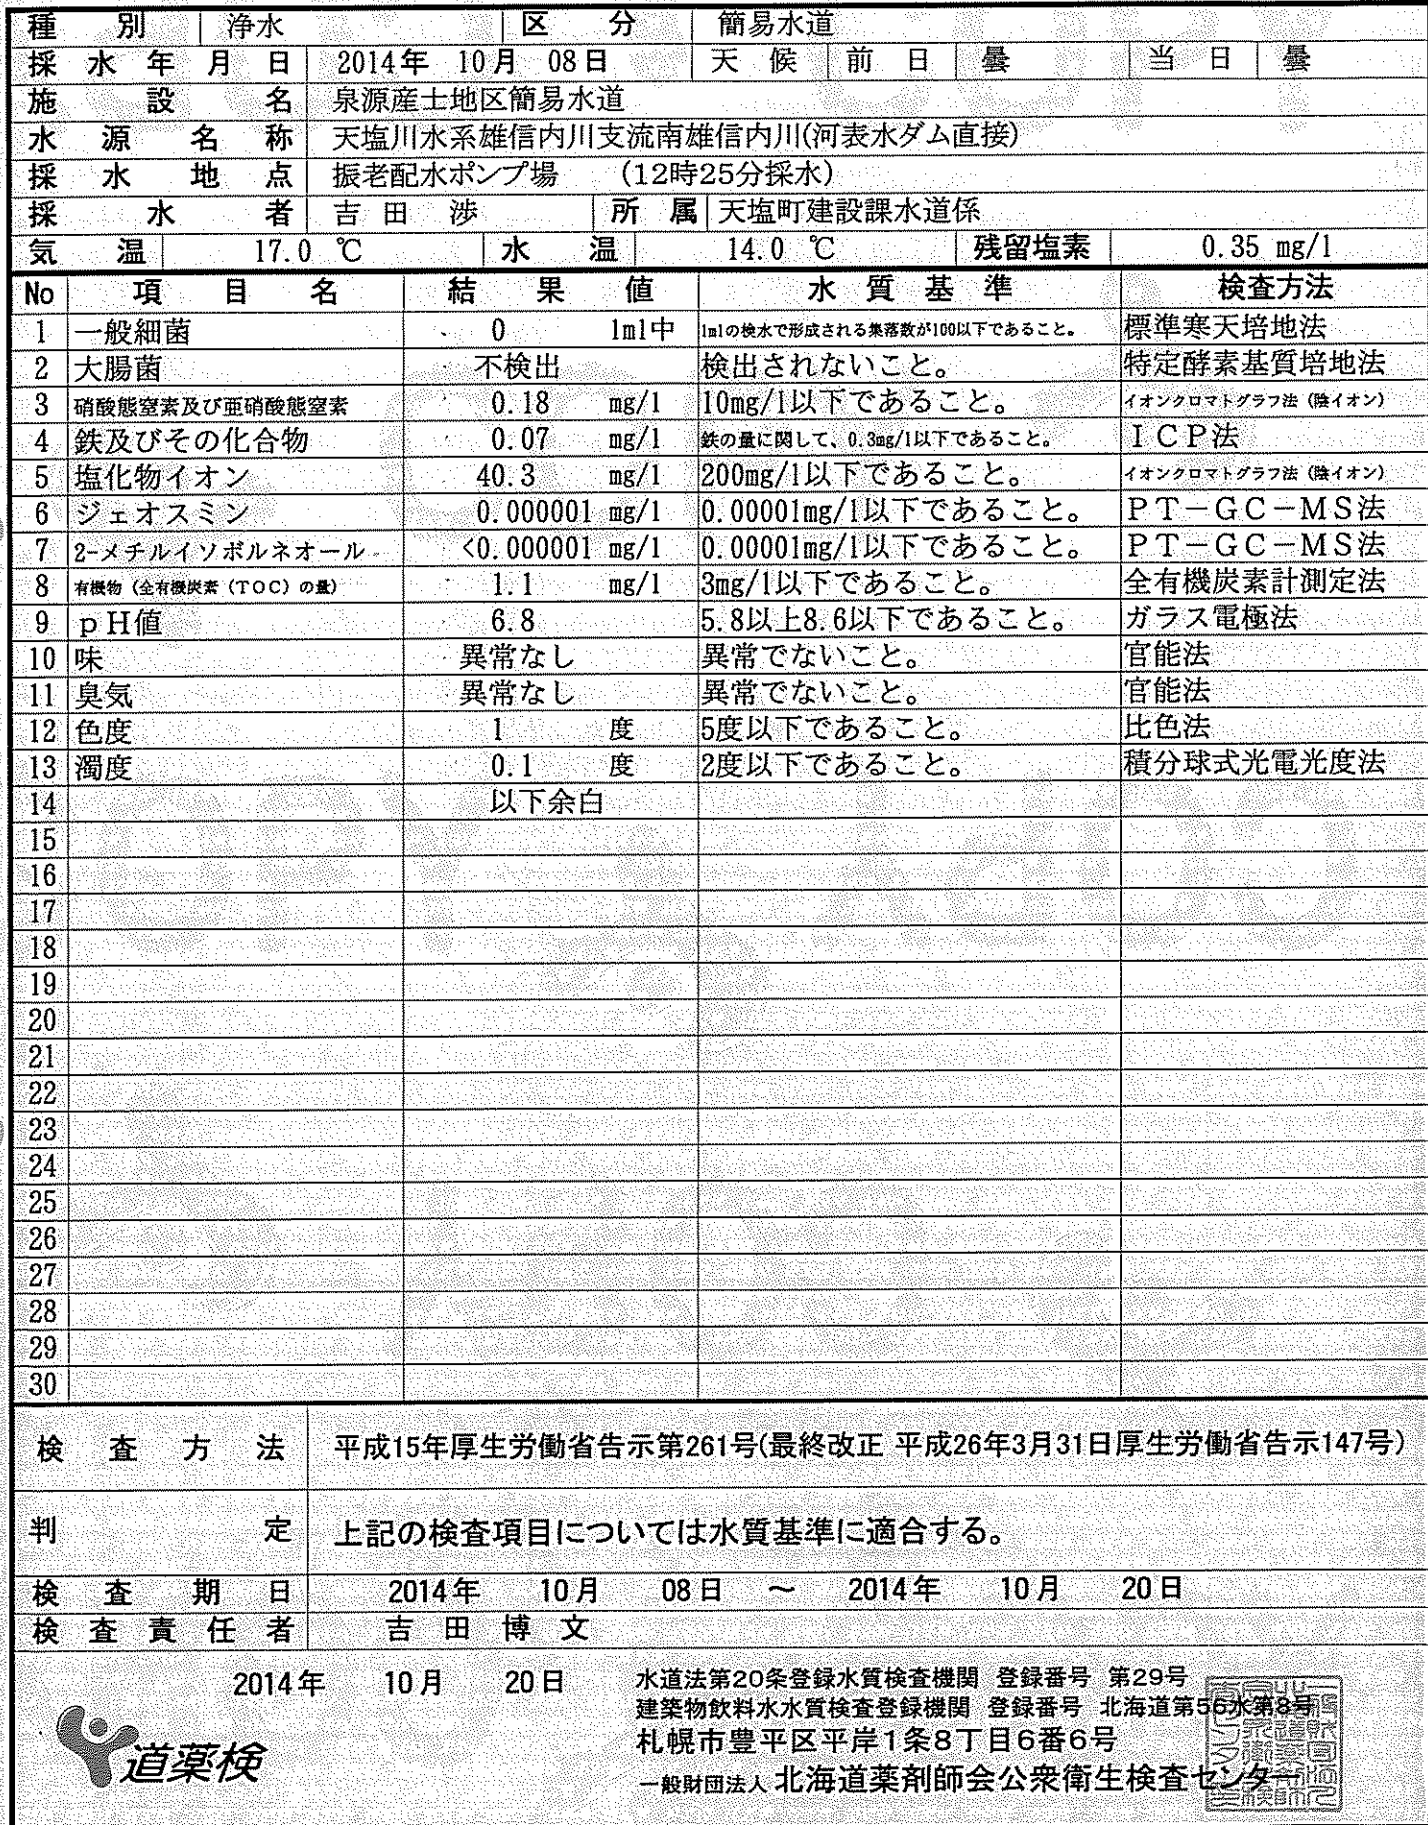 種別 浄水 区分 簡易水道
採水年月日 2014年 10月 08日 天候 前日 曇 当日 曇
施設名 泉源産士地区簡易水道
水源名称 天塩川水系雄信内川支流南雄信内川(河表水ダム直接)
採水地点 振老配水ポンプ場 (12時25分採水)
採水者 吉田 渉 所属 天塩町建設課水道係
気温 17.0 ℃ 水温 14.0 ℃ 残留塩素 0.35 mg/l
No 項目名 結果値 水質基準 検査方法
1 一般細菌 0 1ml中 1mlの検水で形成される集落数が100以下であること。 標準寒天培地法
2 大腸菌 不検出 検出されないこと。 特定酵素基質培地法
3 硝酸態窒素及び亜硝酸態窒素 0.18 mg/l 10mg/l以下であること。 イオンクロマトグラフ法(陰イオン)
4 鉄及びその化合物 0.07 mg/l 鉄の量に関して、0.3mg/l以下であること。 ICP法
5 塩化物イオン 40.3 mg/l 200mg/l以下であること。 イオンクロマトグラフ法(陰イオン)
6 ジェオスミン 0.000001 mg/l 0.00001mg/l以下であること。 PT-GC-MS法
7 2-メチルイソボルネオール <0.000001 mg/l 0.00001mg/l以下であること。 PT-GC-MS法
8 有機物(全有機炭素(TOC)の量) 1.1 mg/l 3mg/l以下であること。 全有機炭素計測定法
9 pH値 6.8 5.8以上8.6以下であること。 ガラス電極法
10 味 異常なし 異常でないこと。 官能法
11 臭気 異常なし 異常でないこと。 官能法
12 色度 1 度 5度以下であること。 比色法
13 濁度 0.1 度 2度以下であること。 積分球式光電光度法
14 以下余白
15
16
17
18
19
20
21
22
23
24
25
26
27
28
29
30
検査方法 平成15年厚生労働省告示第261号(最終改正 平成26年3月31日厚生労働省告示147号)
判定 上記の検査項目については水質基準に適合する。
検査期日 2014年 10月 08日 ～ 2014年 10月 20日
検査責任者 吉田博文
2014年 10月 20日
水道法第20条登録水質検査機関 登録番号 第29号
建築物飲料水水質検査登録機関 登録番号 北海道第56水第8号
札幌市豊平区平岸1条8丁目6番6号
一般財団法人 北海道薬剤師会公衆衛生検査センター
道薬検